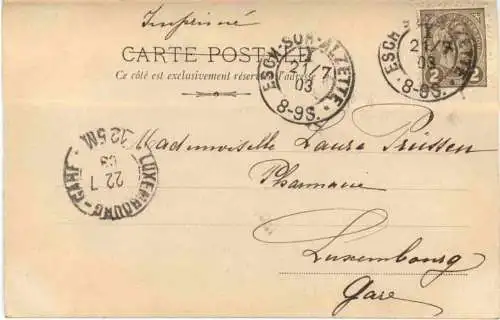 Imprimé
CARTE POSTALE
Ce côté est exclusivement réservé à l'adresse
ESCH-SUR-ALZETTE
21/7
03
8-9S.
ESCH
21/7
03
8-9S.
2 2
LUXEMBOURG-GARE
22 7
03
12-5M.
Mademoiselle Laura Prüssen
Pharmacie
Luxembourg
Gare